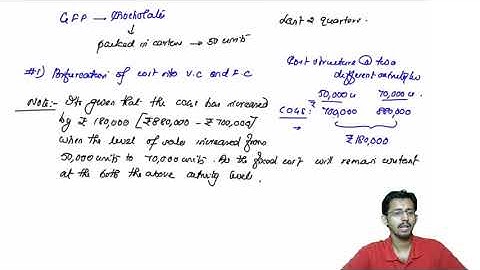 GFP → Chocolate
↳ packed in carton → 50 units
Last 2 quarters.
#1) Bifurcation of cost into V.C and F.C
Cost structure @ two
different activity lev
50,000 u 70,000 u.
₹
COGS: 700,000 880,000
→
₹180,000
Note:- It is given that the COGS has increased
by ₹ 180,000 [₹880,000 - ₹700,000]
when the level of sales increased from
50,000 units to 70,000 units. As the fixed cost will remain constant
at the both the above activity levels.